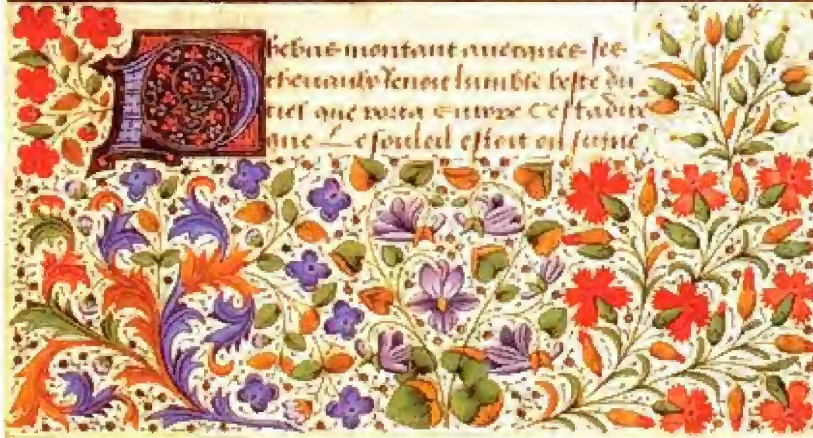 Phebus montant auecques ses
cheuaulx tenoit lumble beste du
ciel que porta europe Cestadire
que Le souleil estoit ou signe